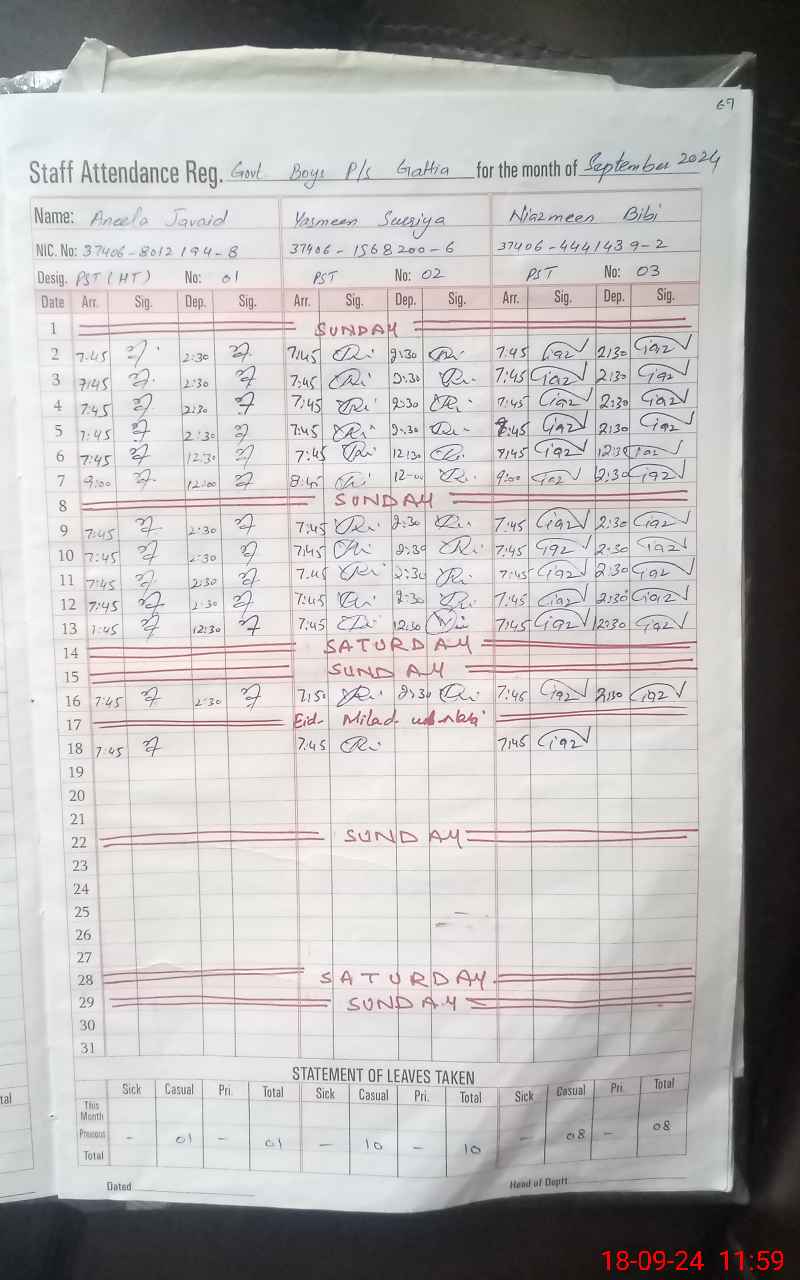 69
Staff Attendance Reg. Govt Boys P/s Gattia for the month of September 2024
Name: Aneela Javaid Yasmeen Surriya Niazmeen Bibi
NIC. No: 37406-8012194-8 37406-1568200-6 37406-4441439-2
Desig. PST (HT) No: 01 PST No: 02 PST No: 03
Date Arr. Sig. Dep. Sig. Arr. Sig. Dep. Sig. Arr. Sig. Dep. Sig.
1 SUNDAY
2 7:45 2:30 7:45 2:30 7:45 2:30
3 7:45 2:30 7:45 2:30 7:45 2:30
4 7:45 2:30 7:45 2:30 7:45 2:30
5 7:45 2:30 7:45 2:30 :45 2:30
6 7:45 12:30 7:45 12:30 7:45 12:30
7 9:00 12:00 8:45 12:00 9:00 2:30
8 SUNDAY
9 7:45 2:30 7:45 2:30 7:45 2:30
10 7:45 2:30 7:45 2:30 7:45 2:30
11 7:45 2:30 7:45 2:30 7:45 2:30
12 7:45 2:30 7:45 2:30 7:45 2:30
13 7:45 12:30 7:45 12:30 7:45 12:30
14 SATURDAY
15 SUNDAY
16 7:45 2:30 7:50 2:30 7:46 2:30
17 Eid Milad
18 7:45 7:45 7:45
19
20
21
22 SUNDAY
23
24
25
26
27
28 SATURDAY
29 SUNDAY
30
31
STATEMENT OF LEAVES TAKEN
Sick Casual Pri. Total Sick Casual Pri. Total Sick Casual Pri. Total
This
Month
Previous - 01 - 01 - 10 - 10 - 08 - 08
Total
Dated Head of Deptt.
18-09-24 11:59